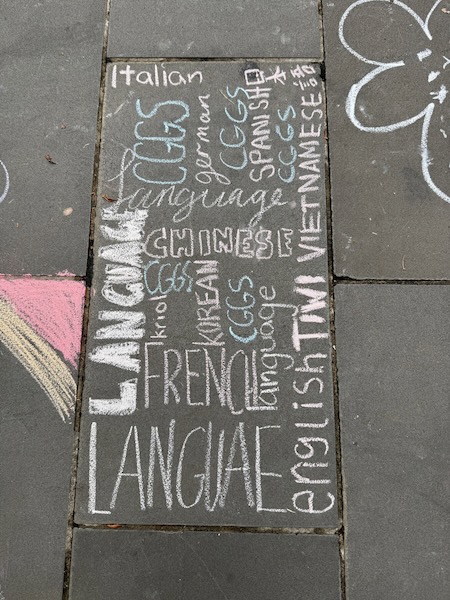 Italian
日本語
CGGS
german
CGGS
SPANISH
CGGS
VIETNAMESE
Language
CHINESE
LANGUAGE
CGGS
kriol
KOREAN
CGGS
language
TIWI
FRENCH
english
LANGUAE